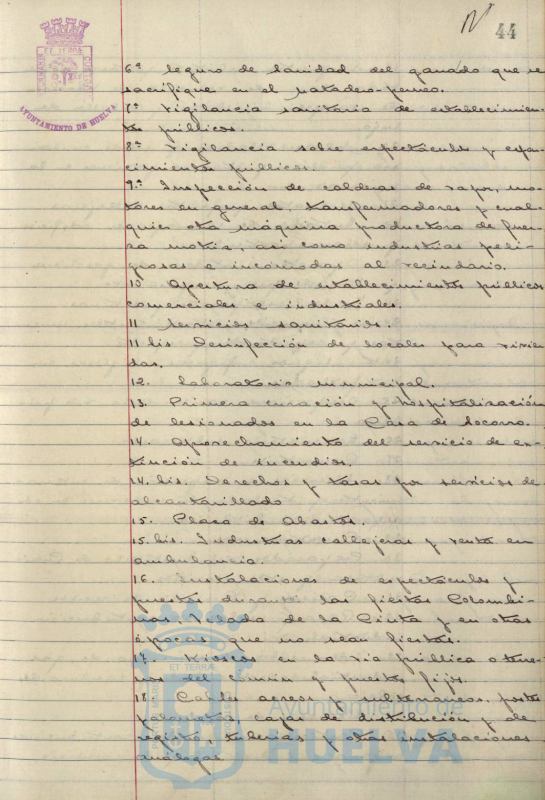 44
PORTUS MARIS ET TERRAE CUSTODIA
AYUNTAMIENTO DE HUELVA
6ª Seguro de sanidad del ganado que se
sacrifique en el matadero-perneo.
7ª Vigilancia sanitaria de establecimien-
tos públicos.
8ª Vigilancia sobre espectáculos y espar-
cimientos públicos.
9ª Inspección de calderas de vapor, mo-
tores en general, transformadores y cual-
quier otra máquina productora de fuer-
za motriz, asi como industrias peli-
grosas e incomodas al vecindario.
10 Apertura de establecimientos públicos
comerciales e industriales.
11 Servicios sanitarios.
11 bis Desinfección de locales para vivien-
das.
12. Laboratorio municipal.
13. Primera curación y hospitalización
de lesionados en la Casa de Socorro.
14. Aprovechamiento del servicio de ex-
tinción de incendios.
14. bis. Derechos y tasas por servicios de
alcantarillado
15. Plaza de Abastos.
15. bis. Industrias callejeras y venta en
ambulancia.
16. Instalaciones de espectáculos y
puestos durante las fiestas Colombi-
nas, Velada de la Cinta y en otras
épocas que no sean fiestas.
17. Kioscos en la via pública o terre-
nos del común y puestos fijos.
18. Cables aereos y subterraneos, postes
palometas, cajas de distribución y de
registro, tuberias y otras instalaciones
análogas.
Ayuntamiento de
HUELVA